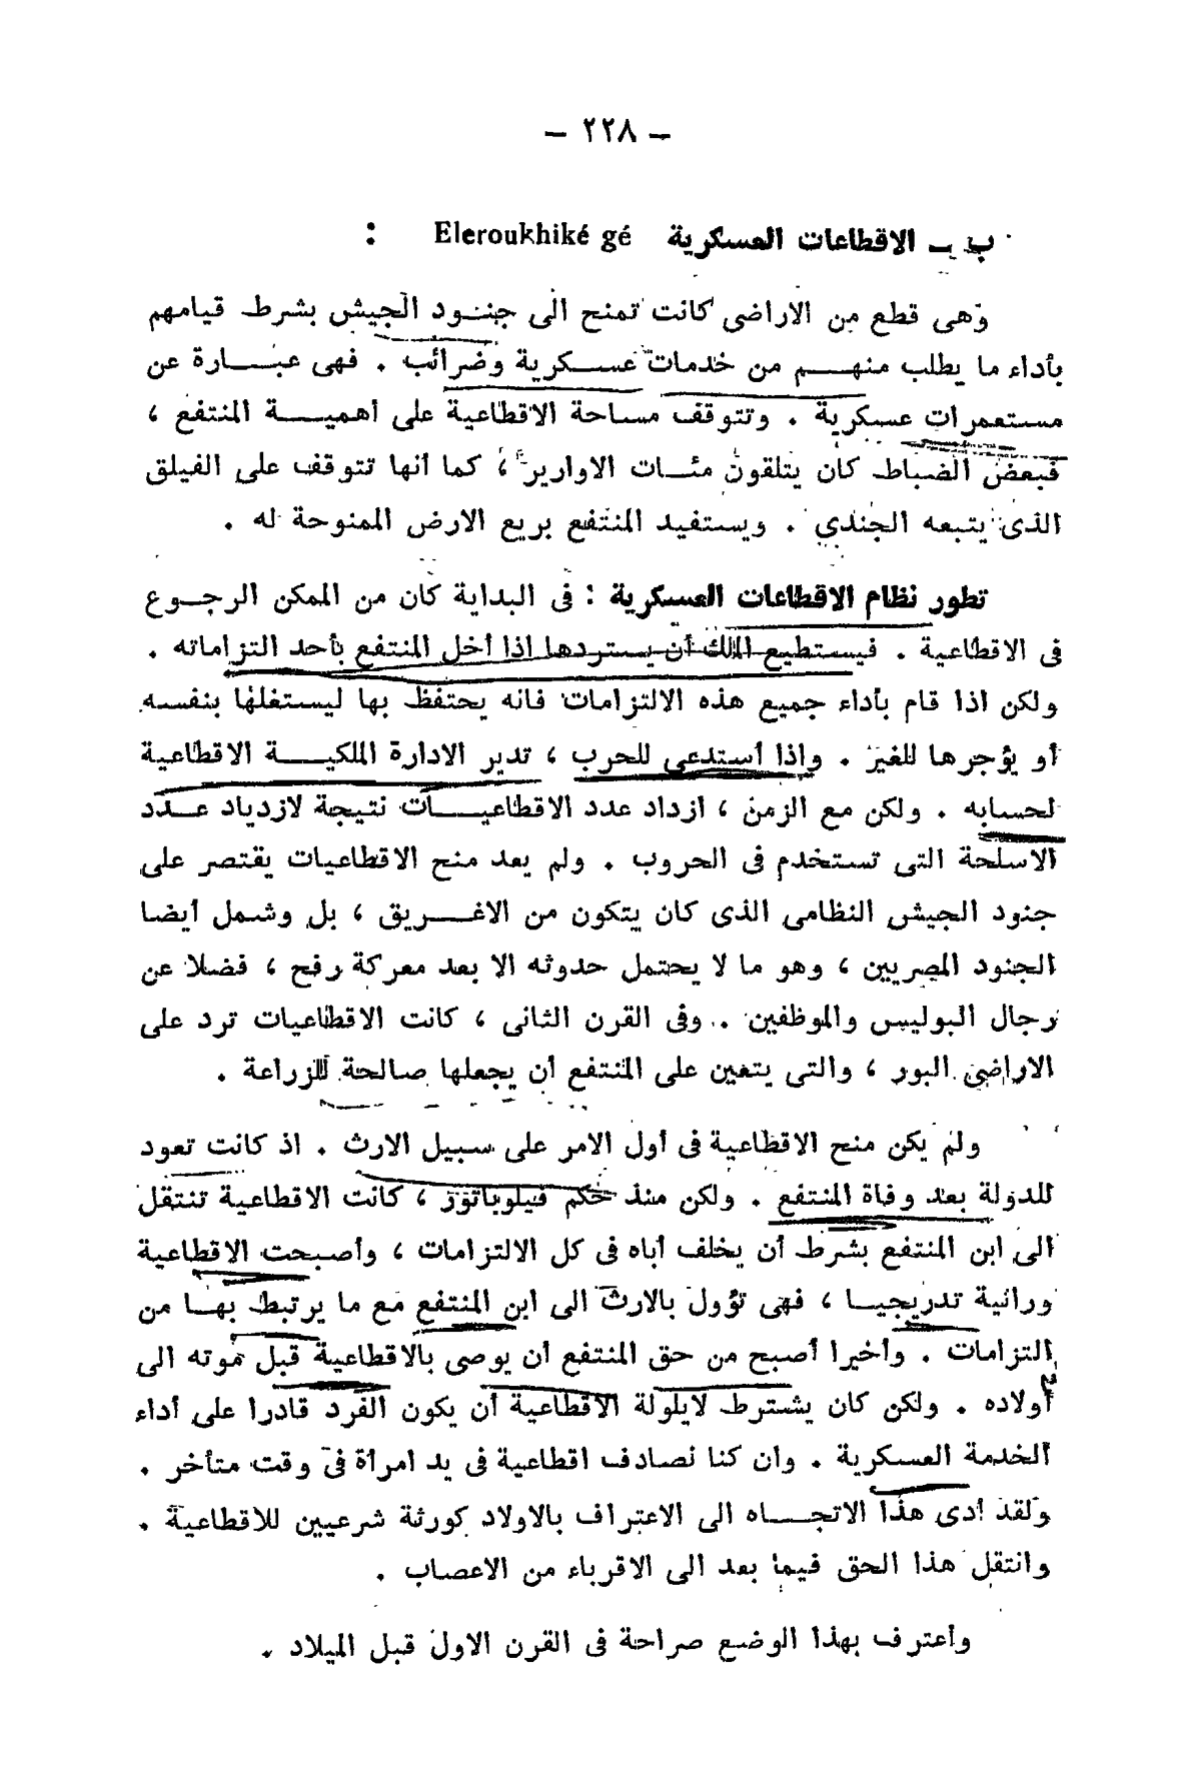 — ٢٢٨ —
ب — الاقطاعات العسكرية Eleroukhiké gé :
وهى قطع من الاراضى كانت تمنح الى جنود الجيش بشرط قيامهم
بأداء ما يطلب منهم من خدمات عسكرية وضرائب . فهى عبارة عن
مستعمرات عسكرية . وتتوقف مساحة الاقطاعية على أهمية المنتفع ،
فبعض الضباط كان يتلقون مئات الاوارير ، كما أنها تتوقف على الفيلق
الذى يتبعه الجندي . ويستفيد المنتفع بريع الارض الممنوحة له .
تطور نظام الاقطاعات العسكرية : فى البداية كان من الممكن الرجوع
فى الاقطاعية . فيستطيع الملك أن يستردها اذا أخل المنتفع بأحد التزاماته .
ولكن اذا قام بأداء جميع هذه الالتزامات فانه يحتفظ بها ليستغلها بنفسه
أو يؤجرها للغير . واذا أستدعى للحرب ، تدير الادارة الملكية الاقطاعية
لحسابه . ولكن مع الزمن ، ازداد عدد الاقطاعيات نتيجة لازدياد عدد
الاسلحة التى تستخدم فى الحروب . ولم يعد منح الاقطاعيات يقتصر على
جنود الجيش النظامى الذى كان يتكون من الاغريق ، بل وشمل أيضا
الجنود المصريين ، وهو ما لا يحتمل حدوثه الا بعد معركة رفح ، فضلا عن
رجال البوليس والموظفين . وفى القرن الثانى ، كانت الاقطاعيات ترد على
الاراضى البور ، والتى يتعين على المنتفع أن يجعلها صالحة للزراعة .
ولم يكن منح الاقطاعية فى أول الامر على سبيل الارث . اذ كانت تعود
للدولة بعد وفاة المنتفع . ولكن منذ حكم فيلوباتور ، كانت الاقطاعية تنتقل
الى ابن المنتفع بشرط أن يخلف أباه فى كل الالتزامات ، وأصبحت الاقطاعية
وراثية تدريجيا ، فهى تؤول بالارث الى ابن المنتفع مع ما يرتبط بها من
التزامات . وأخيرا أصبح من حق المنتفع أن يوصى بالاقطاعية قبل موته الى
أولاده . ولكن كان يشترط لايلولة الاقطاعية أن يكون الفرد قادرا على أداء
الخدمة العسكرية . وان كنا نصادف اقطاعية فى يد امرأة فى وقت متأخر .
ولقد أدى هذا الاتجاه الى الاعتراف بالاولاد كورثة شرعيين للاقطاعية .
وانتقل هذا الحق فيما بعد الى الاقرباء من الاعصاب .
وأعترف بهذا الوضع صراحة فى القرن الاول قبل الميلاد .